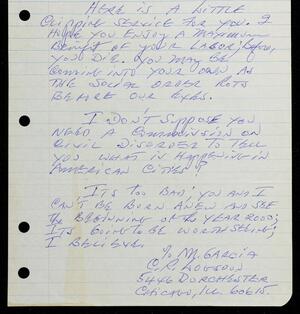 HERE IS A LITTLE
CLIPPING SERVICE FOR YOU. I
HOPE YOU ENJOY A MAXIMUM
BENEFIT OF YOUR LABOR, BEFORE
YOU DIE. YOU MAY BE
COMING INTO YOUR OWN AS
THE SOCIAL ORDER ROTS
BEFORE OUR EYES.
I DON'T SUPPOSE YOU
NEED A COMMISSION ON
CIVIL DISORDER TO TELL
YOU WHAT IS HAPPENING IN
AMERICAN CITIES?
IT'S TOO BAD, YOU AND I
CAN'T BE BORN ANEW AND SEE
THE BEGINNING OF THE YEAR 2000;
IT'S GOING TO BE WORTH SEEING,
I BELIEVE.
M. GARCIA
C.
5446 DORCHESTER
CHICAGO, ILL. 60615.